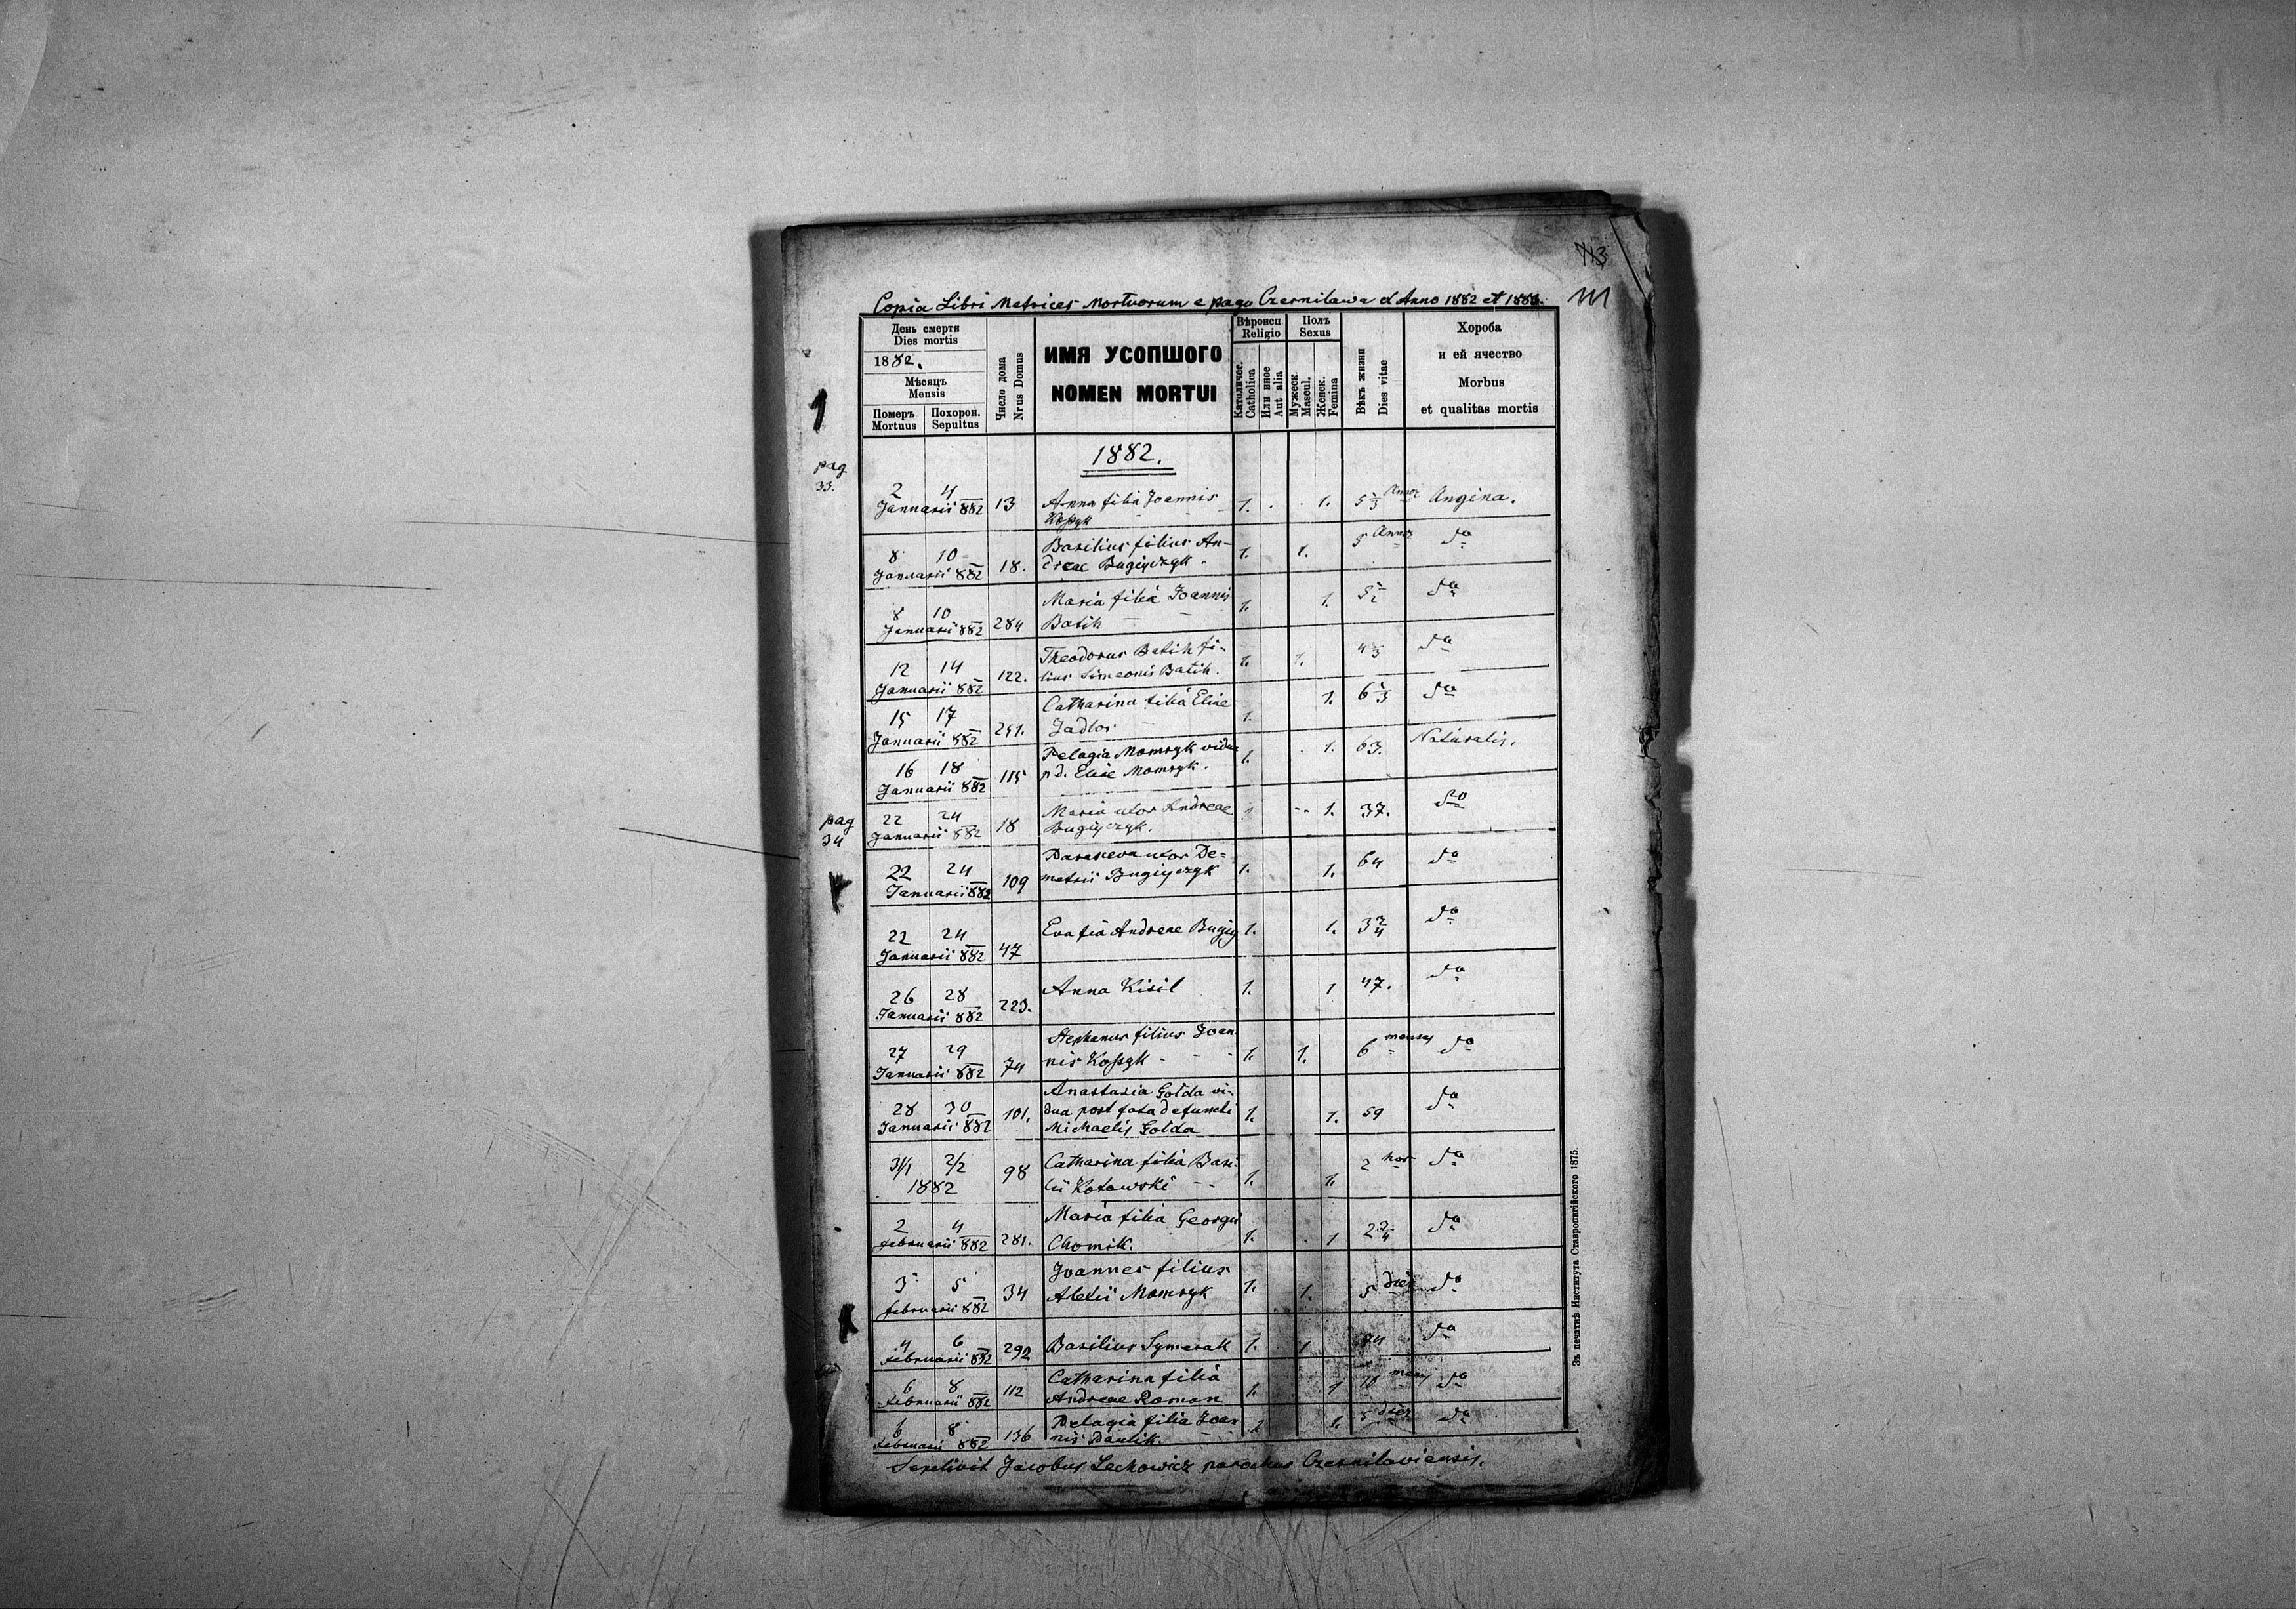 113
Copia Libri Metrices Mortuorum e pago Czernilawa d Anno 1882 et 1883.
111
День смерти
Dies mortis
1882.
Мѣсяць
Mensis
Померъ
Mortuus
Похорон.
Sepultus
Число дома
Nrus Domus
ИМЯ УСОПШОГО
NOMEN MORTUI
Вѣроисп
Religio
Католичес.
Catholica
Или иное
Aut alia
Полъ
Sexus
Мужеск.
Mascul.
Женск.
Femina
Вѣкъ жизни
Dies vitae
Хороба
и ей ячество
Morbus
et qualitas mortis
1
1882.
pag
33.
2 4
Januarii 882 13 Anna filia Joannis 1. 1. Angina.
8 10 Basilius filius An-
Januarii 882 18. dreae Bugiyczyk. 1. 1. 5 Annor do
8 10 Maria filia Joannis
Januarii 882 284 Batih 1. 1. do
12 14 Theodorus Batih fi-
Januarii 882 122. lius Simeonis Batih. 1. 1. do
15 17 Catharina filia Eliae
Januarii 882 Jadlos 1. 1. do
16 18 Pelagia Momryk vidua
Januarii 882 115 pd. Eliae Momryk. 1. 1. 63. Naturalis.
pag
34
22 24 Maria uxor Andreae
Januarii 882 18 Bugiyczyk. 1. 37. do
22 24 Parasceva uxor De-
Januarii 882 109 metrii Bugiyczyk 1. 1. 64 do
22 24 Eva fia Andreae Bugiy 1. 1. 3 3/4 do
Januarii 882 47
26 28 Anna Kisil 1. 1 47. do
Januarii 882 223.
27 29 Stephanus filius Joan
Januarii 882 74 nis Kossyk 1. 1. 6 menses do
28 30 Anastasia Golda vi-
Januarii 882 101. dua post fata defuncti 1. 1. 59 do
Michaelis Golda
31/1 2/2 98 Catharina filia Basi-
1882 lii Kotowski 1. 1. 2 hor do
2 4 Maria filia Georgii
Februarii 882 281. Chomik. 1. 1 2 2/4 do
3 5 Joannes filius
Februarii 882 34 Alexii Momryk 1. 1. 5 dies do
4 6
Februarii 882 292 Basilius Symerak 1. 1 do
6 8 Catharina filia
Februarii 882 112 Andreae Roman 1. 1 10 mens do
6 8 Pelagia filia Joan
Februarii 882 136 nis Paulik. 1. 5 dies do
Sepelivit Jacobus Lechowicz parochus Czernilaviensis.
Зъ печатнѣ Института Ставропигійского 1875.